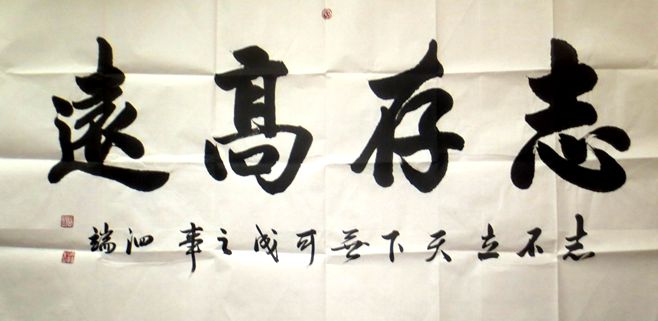 志存高遠
志不立天下無可成之事 泗端